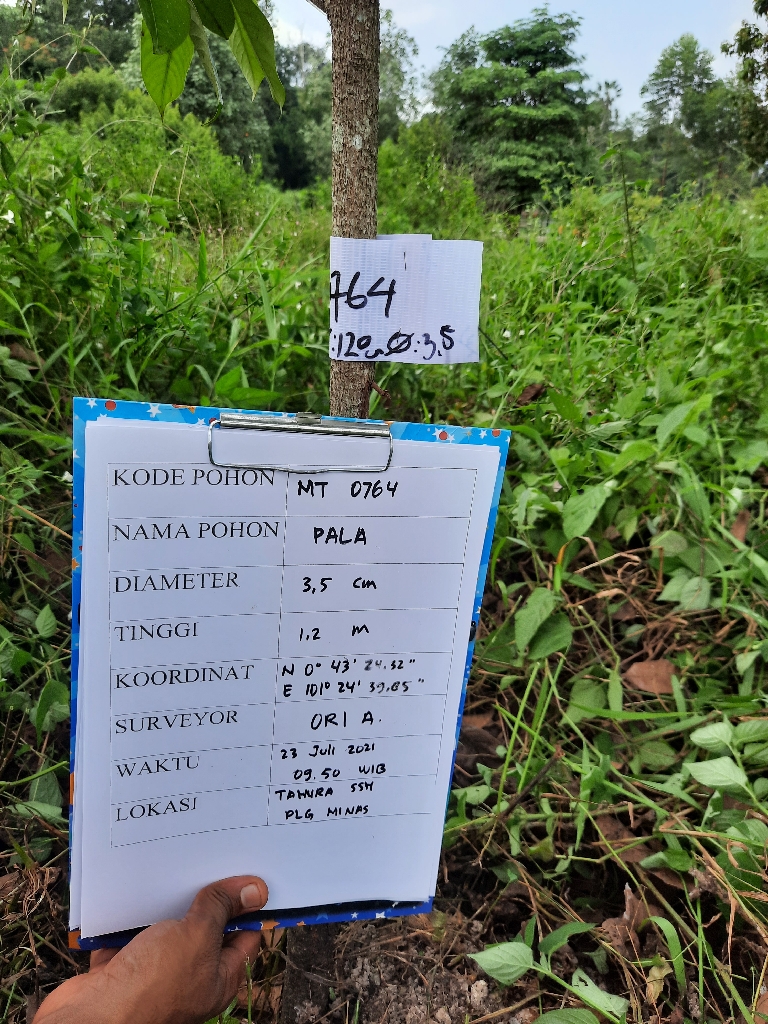 764
:120 Ø:3,5
KODE POHON MT 0764
NAMA POHON PALA
DIAMETER 3,5 cm
TINGGI 1.2 m
KOORDINAT N 0° 43' 24.32"
E 101° 24' 39.85"
SURVEYOR ORI A.
WAKTU 23 Juli 2021
09.50 WIB
LOKASI TAHURA SSH
PLG MINAS